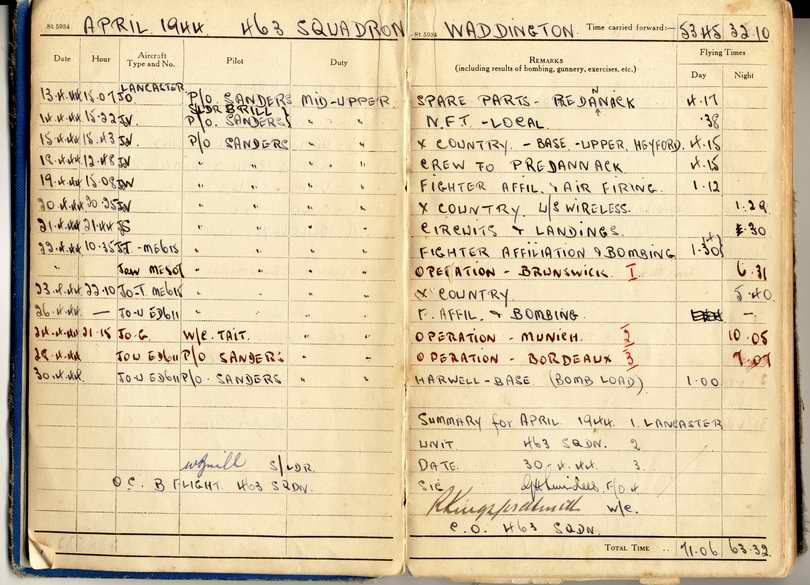 St 5934 APRIL 1944 463 SQUADRON St 5934 WADDINGTON. Time carried forward:— 53.45 32.10
Date Hour Aircraft Type and No. Pilot Duty REMARKS (including results of bombing, gunnery, exercises, etc.) Flying Times Day Night
LANCASTER
13.4.44 15.07 JO P/O SANDERS MID-UPPER SPARE PARTS - PREDANNACK 4.17
S/LDR BRILL
14.4.44 15.22 P/O SANDERS " " N.F.T. - LOCAL .38
15.4.44 15.43 P/O SANDERS " " X COUNTRY - BASE - UPPER HEYFORD. 4.15
18.4.44 12.48 " " " CREW TO PREDANNACK 4.15
19.4.44 15.08 " " " FIGHTER AFFIL. & AIR FIRING. 1.12
20.4.44 20.25 " " " X COUNTRY U/S WIRELESS. 1.29
21.4.44 21.44 " " " CIRCUITS & LANDINGS .30
22.4.44 10.35 " " " FIGHTER AFFILIATION & BOMBING 1.30
" " " " OPERATION - BRUNSWICK 1 6.31
23.4.44 22.10 JO-T ME615 " " " X COUNTRY 5.40
26.4.44 — JO-U ED611 " " " F. AFFIL. & BOMBING. —
24.4.44 21.15 JO-G W/C. TAIT. " " OPERATION - MUNICH. 2 10.05
JO U ED611 P/O SANDERS " " OPERATION - BORDEAUX 3 7.07
30.4.44 JO-U ED611 P/O. SANDERS " " HARWELL - BASE (BOMB LOAD) 1.00
SUMMARY for APRIL 1944 1. LANCASTER
UNIT 463 SQDN. 2
DATE 30.4.44 3.
S/LDR. SIG F/O 4
O.C. B FLIGHT 463 SQDN.
R Kingsford Smith W/C.
C.O. 463 SQDN.
TOTAL TIME .. 71.06 63.32